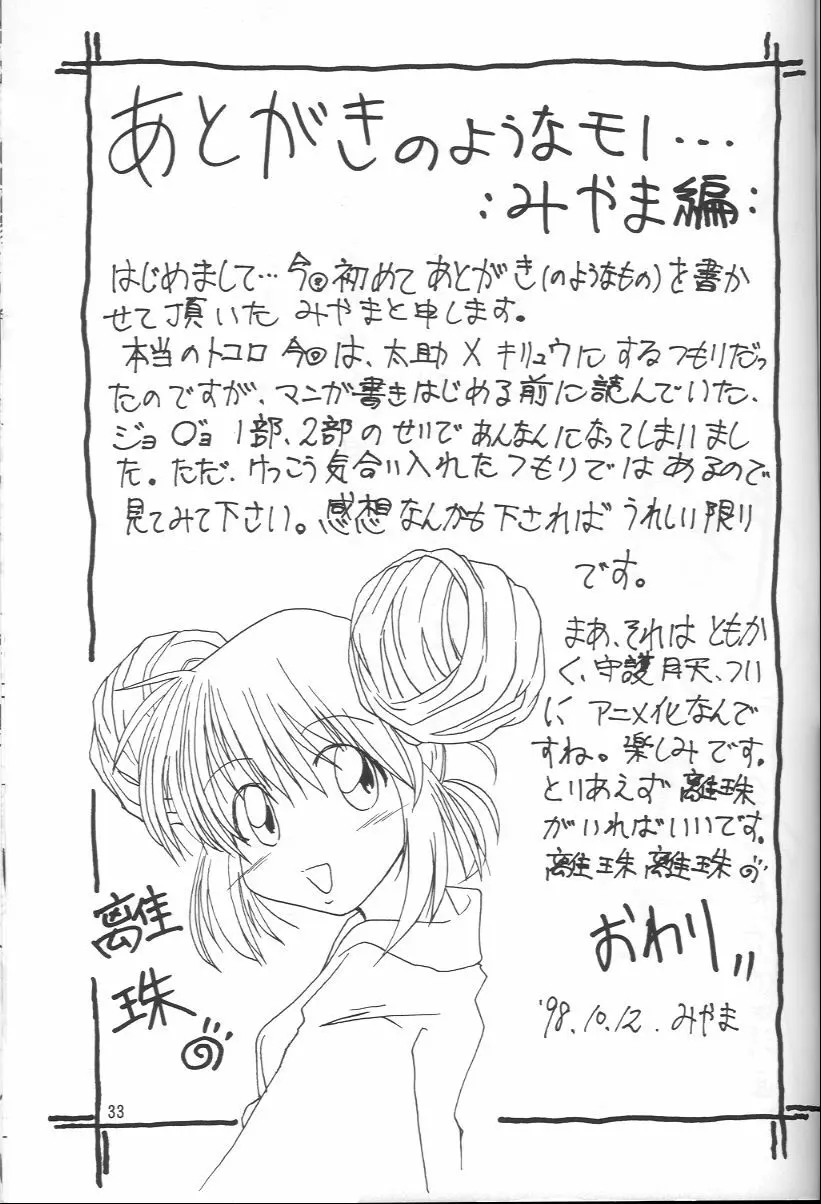 あとがきのようなモノ…
:みやま編:
はじめまして…今回初めてあとがき(のようなもの)を書か
せて頂いたみやまと申します。
本当のトコロ今回は、太助×キリュウにするつもりだっ
たのですが、マニが書きはじめる前に読んでいた、
ジョ○ョ1部、2部のせいであんなんになってしまいまし
た。ただ、けっこう気合い入れたつもりではあるので
見てみて下さい。感想なんかも下さればうれしい限り
です。
まあ、それはともか
く、守護月天、つい
に アニメ化なんで
すね。楽しみです。
とりあえず 離珠
がいればいいです。
離珠 離珠
おわり〃
'98.10.12. みやま
離
珠
33